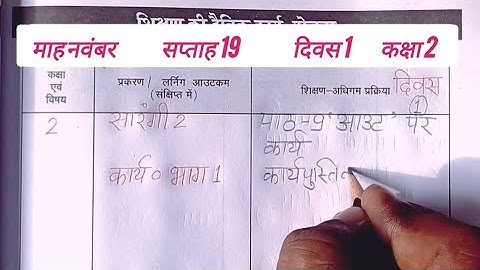 शिक्षण की दैनिक कार्य योजना
माह नवंबर सप्ताह 19 दिवस 1 कक्षा 2
कक्षा एवं विषय
प्रकरण / लर्निंग आउटकम (संक्षिप्त में)
शिक्षण-अधिगम प्रक्रिया
दिवस 1
2 सारंगी 2 पाठ-9 'आउट' पर
कार्य
कार्य० भाग 1 कार्यपुस्ति